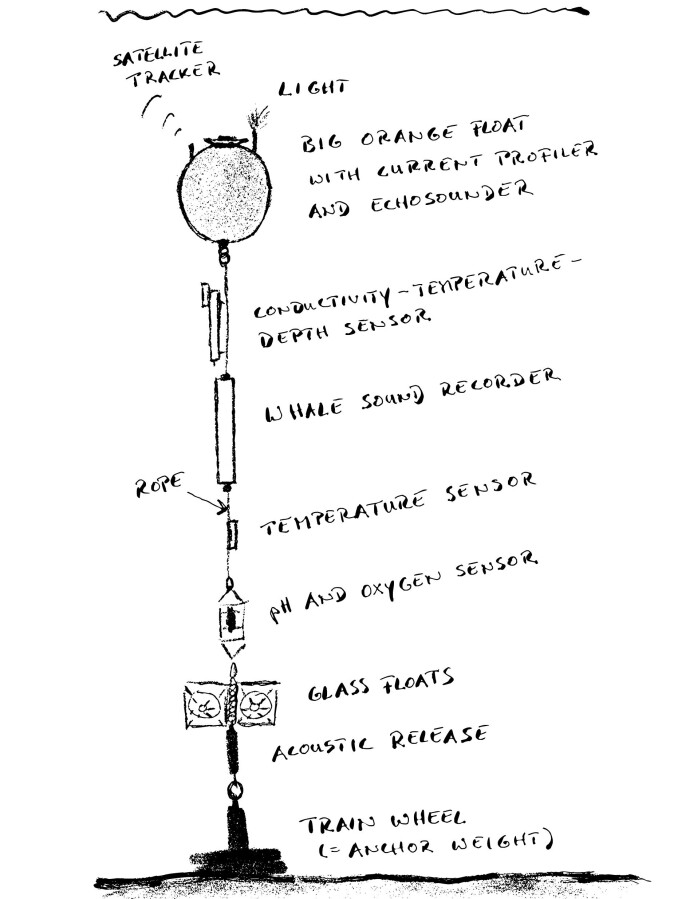 SATELLITE
TRACKER
LIGHT
BIG ORANGE FLOAT
WITH CURRENT PROFILER
AND ECHOSOUNDER
CONDUCTIVITY-TEMPERATURE-
DEPTH SENSOR
WHALE SOUND RECORDER
ROPE
TEMPERATURE SENSOR
pH AND OXYGEN SENSOR
GLASS FLOATS
ACOUSTIC RELEASE
TRAIN WHEEL
(= ANCHOR WEIGHT)